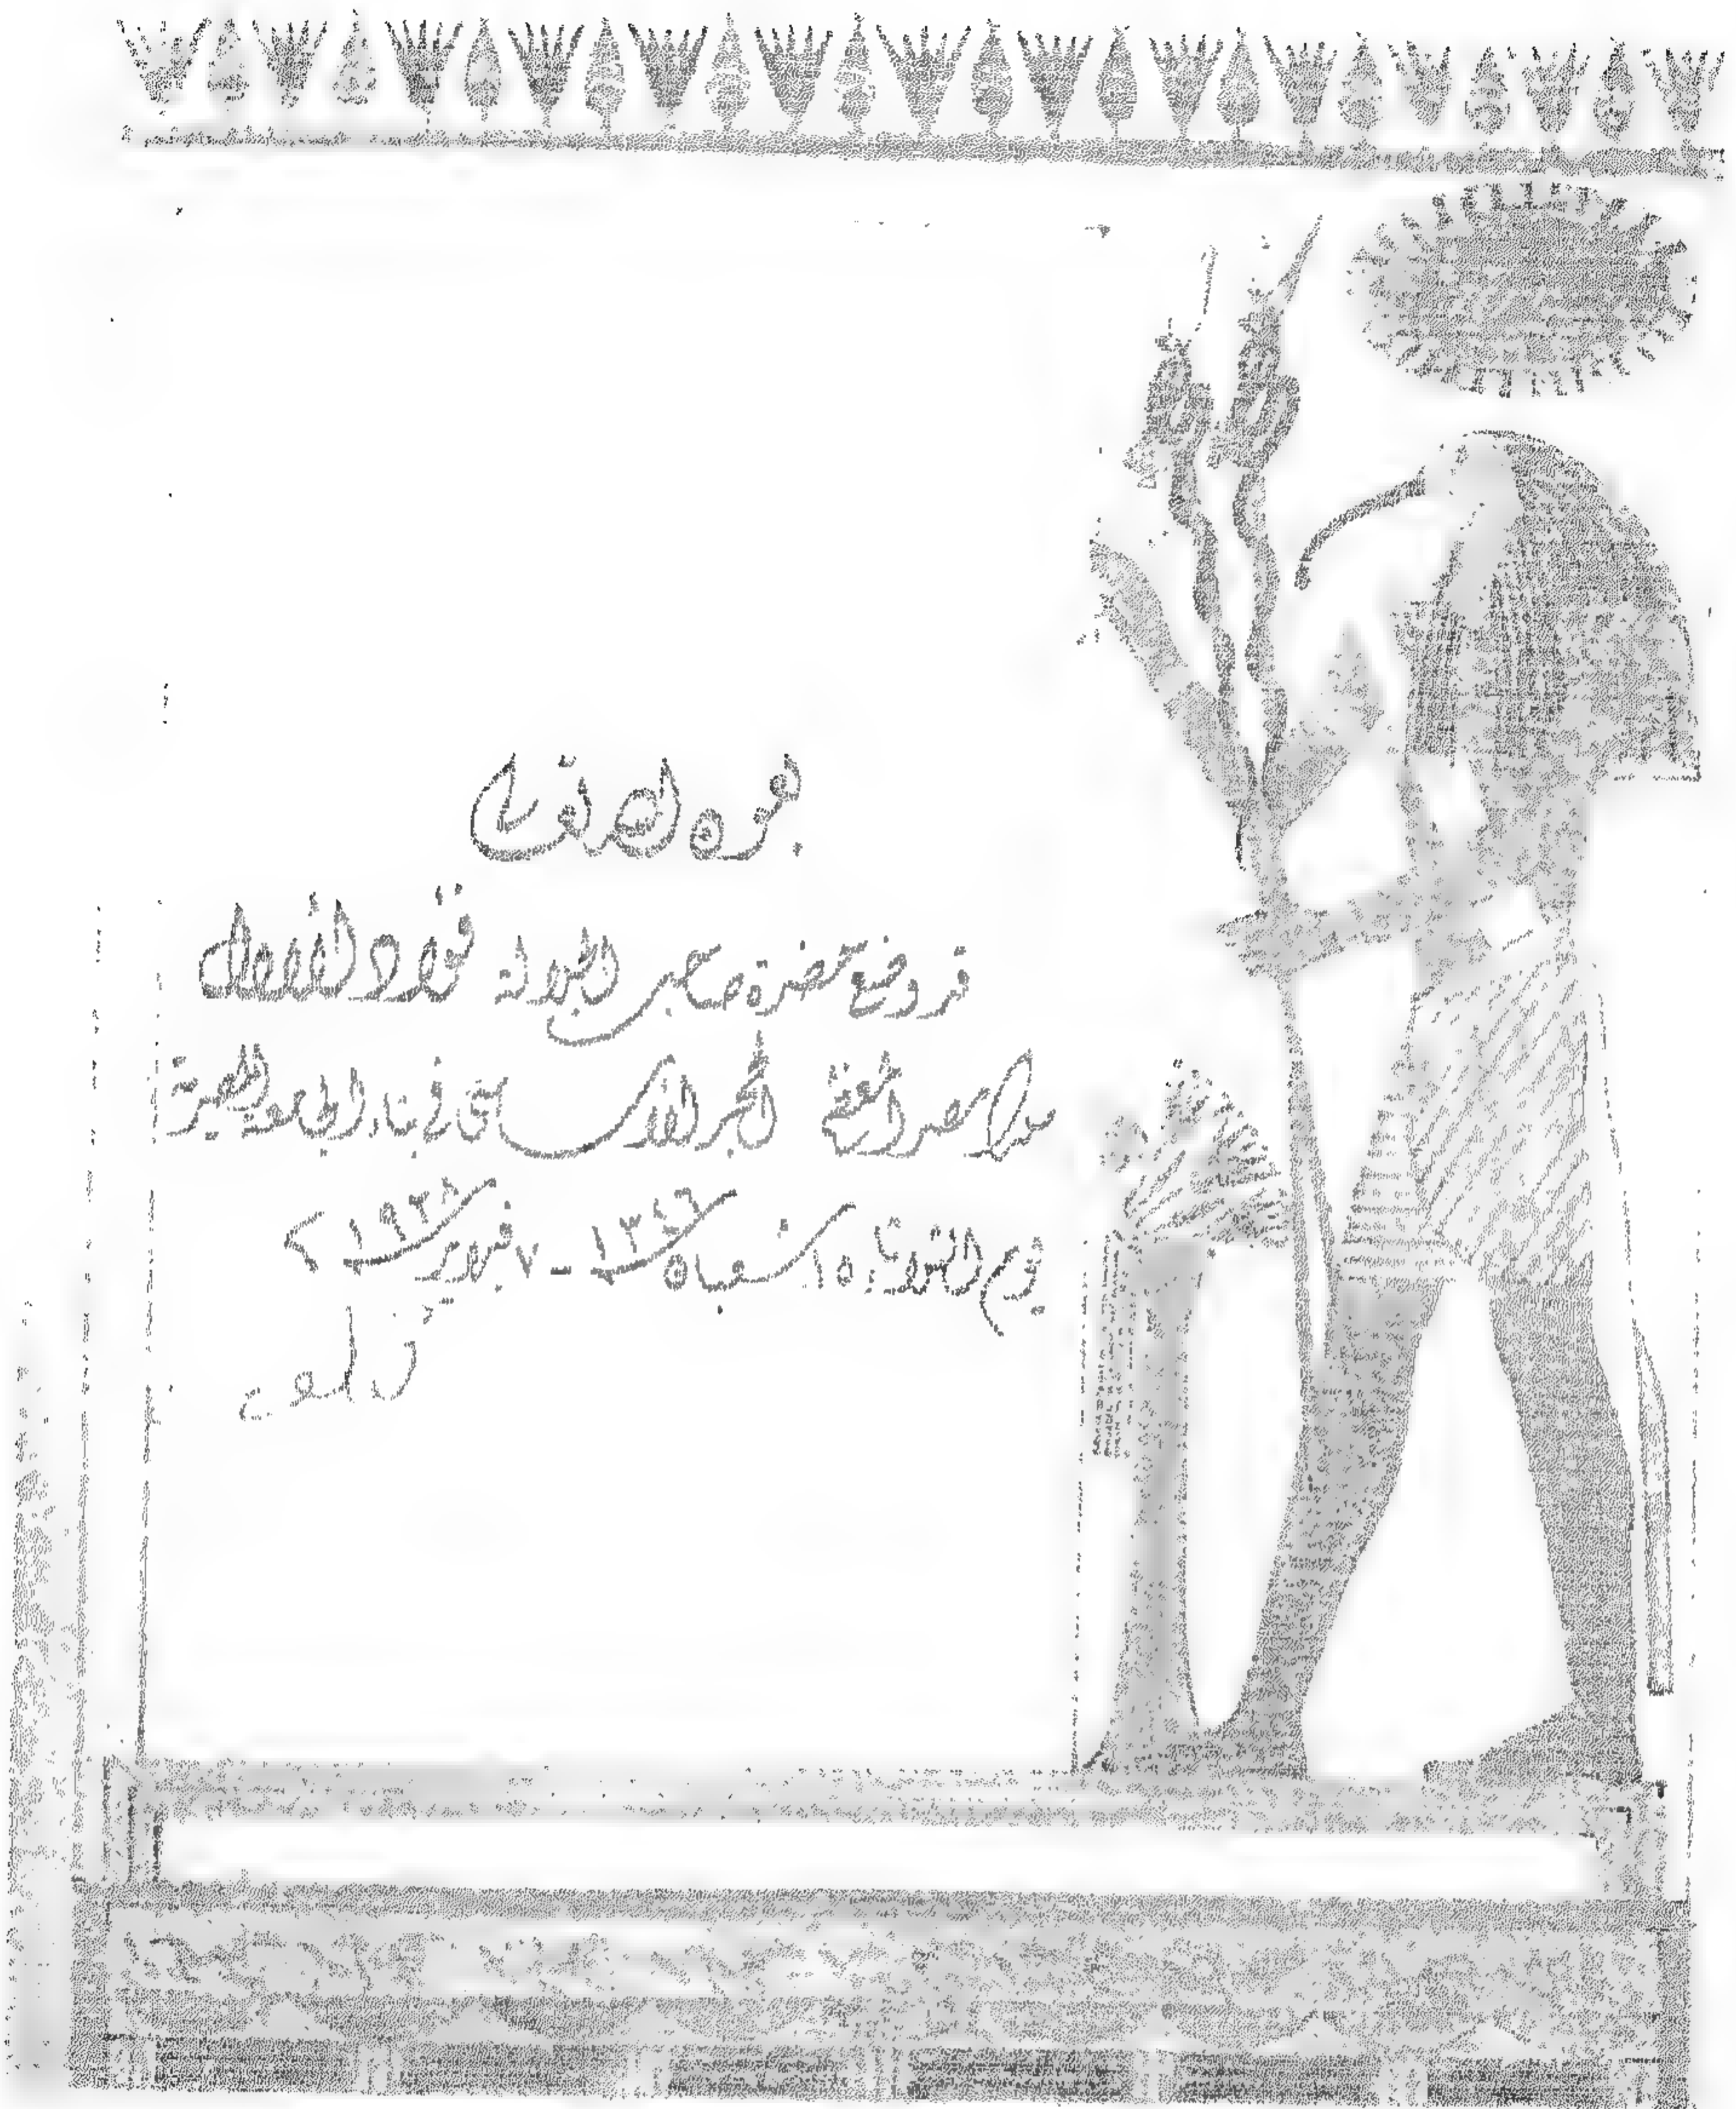 بعون الله تعالى
قد وضع حضرة صاحب الجلالة فؤاد الأول
ملك مصر المعظم الحجر الأساسى فى بناء الجامعة المصرية
يوم الثلاثاء ١٥ شعبان ١٣٤٦ - ٧ فبراير ١٩٢٨ م